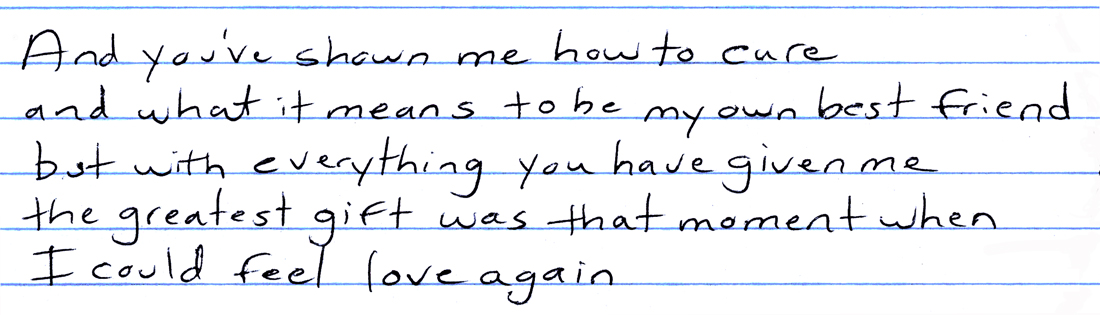 And you've shown me how to care
and what it means to be my own best friend
but with everything you have given me
the greatest gift was that moment when
I could feel love again